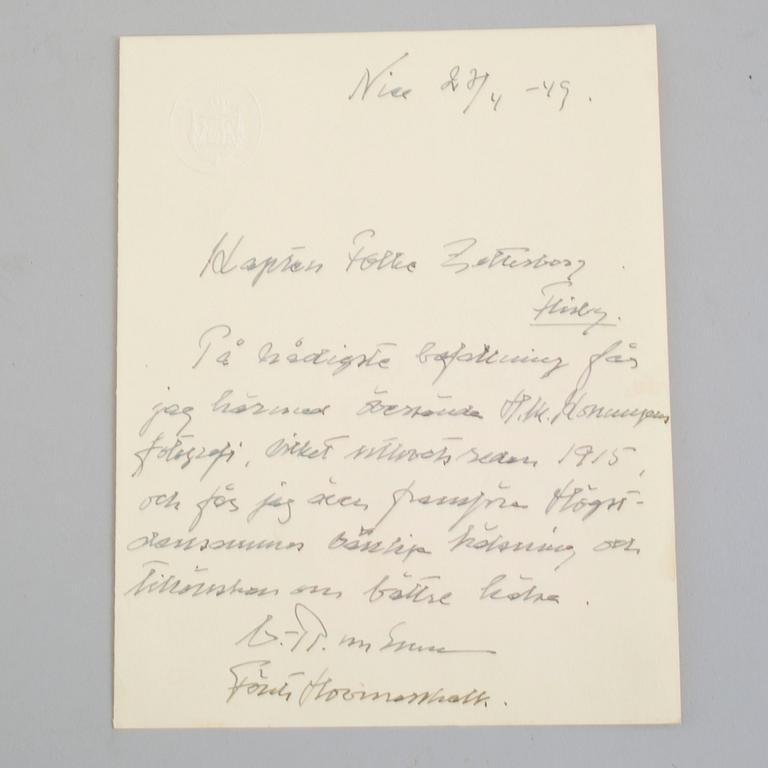 Nice 27/4 -49.
Kapten Folke Zettersborg.
Flisby.
På nådigste befallning får
jag härmed översända H.M. Konungens
fotografi, vilket utlovats redan 1915,
och får jag även framföra Högst-
densammes vänliga hälsning och
tillönskan om bättre hälsa.
Förste Hovmarskalk.